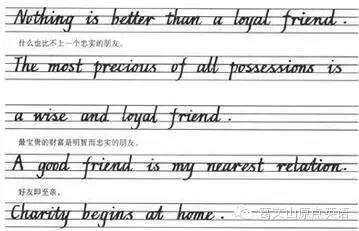 Nothing is better than a loyal friend.
什么也比不上一个忠实的朋友。
The most precious of all possessions is
a wise and loyal friend.
最宝贵的财富是明智而忠实的朋友。
A good friend is my nearest relation.
好友即至亲。
Charity begins at home.
葛文山原点英语